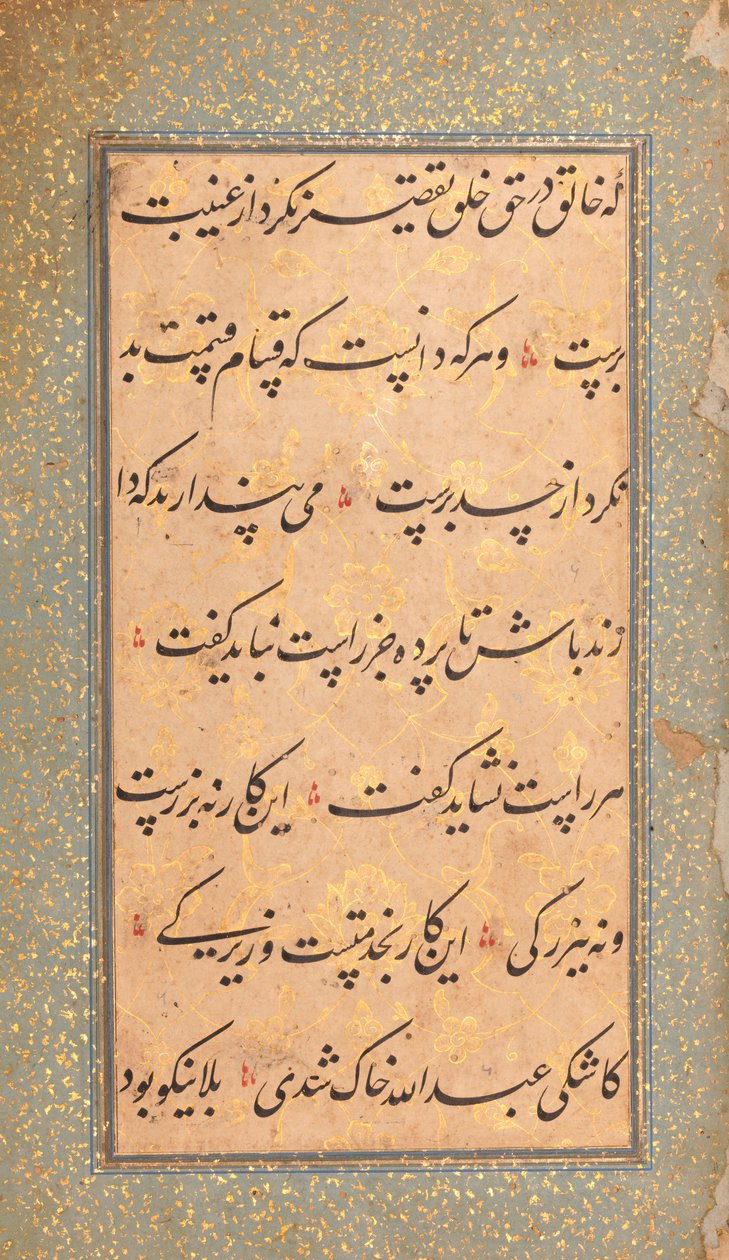 که خالق در حق خلق تقصیر نکرد از غیبت
برست وهرکه دانست که قسام قسمت بد
نکرد از حسد برست می پندارند که دا
رند باش تا پرده جز راست نباید گفت
هر راست نشاید گفت این کار نه بزرست
ونه ببزرگی این کار بخدمتست و زیرکی
کاشکی عبدالله خاک شدی بلا نیکو بود